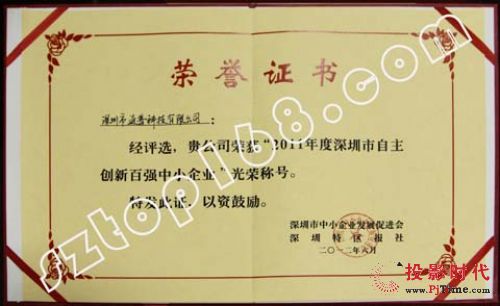 荣誉证书
深圳市蓝普科技有限公司：
经评选，贵公司荣获“2011年度深圳市自主
创新百强中小企业”光荣称号。
特发此证，以资鼓励。
深圳市中小企业发展促进会
深圳特区报社
二〇一二年六月
sztop168.com
投影时代
www.PjTime.com